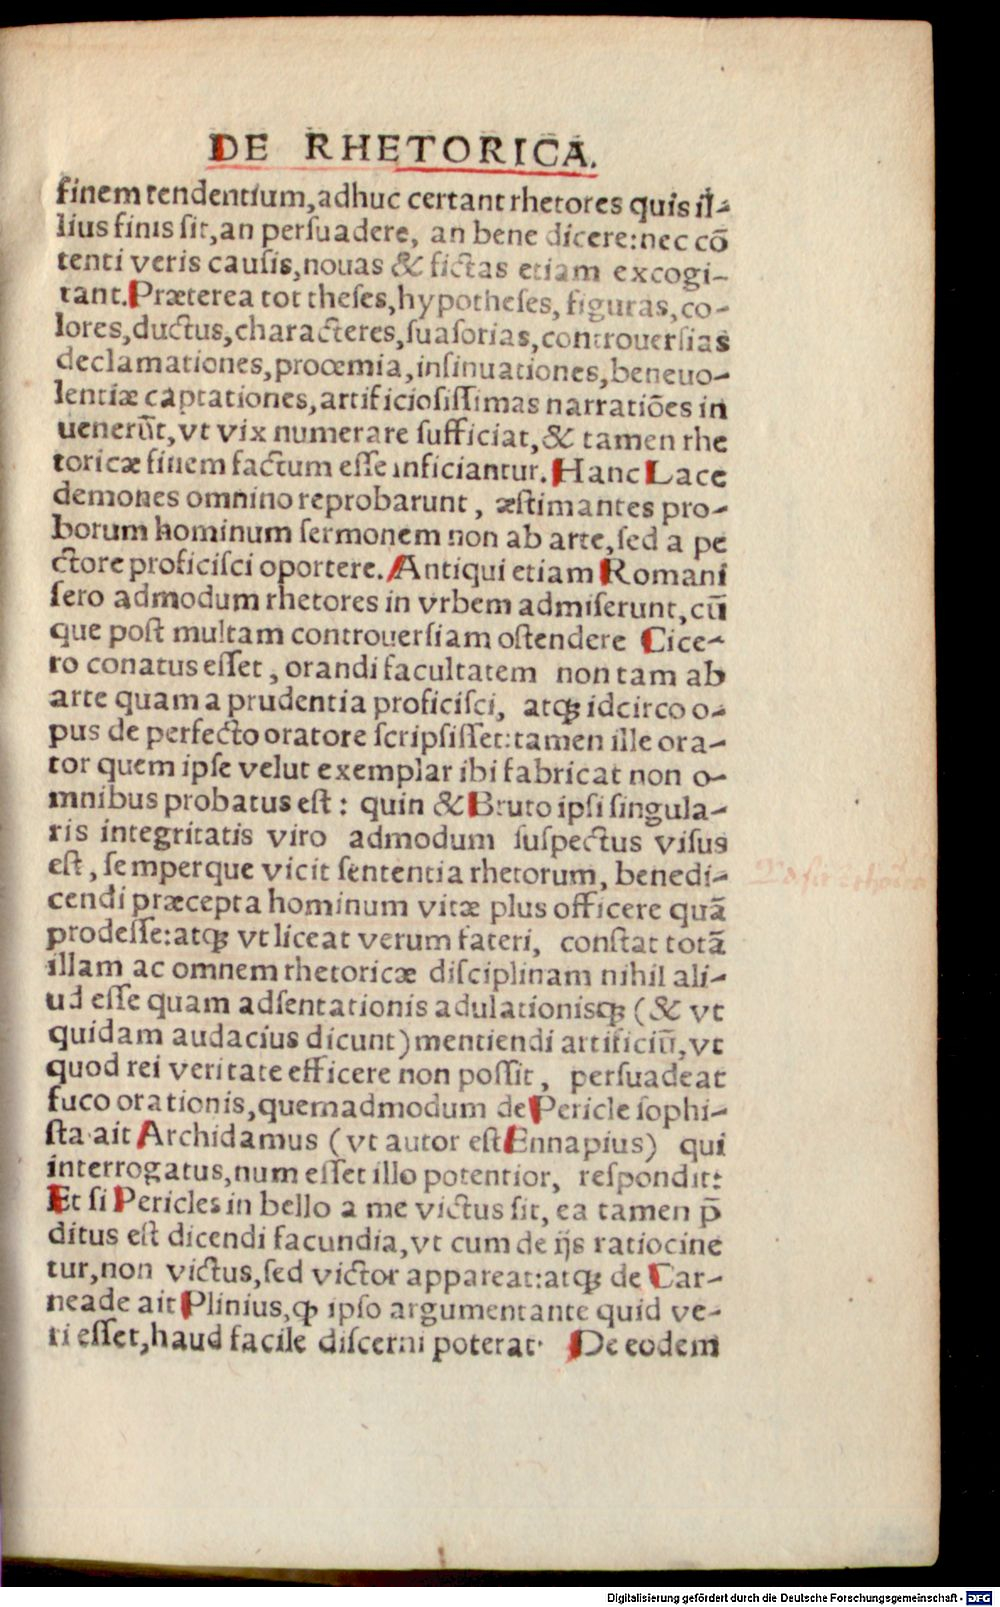 DE RHETORICA.
finem tendentium,adhuc certant rhetores quis il-
lius finis ſit,an perſuadere, an bene dicere:nec cō
tenti veris cauſis,nouas & fictas etiam excogi-
tant.Præterea tot theſes,hypotheſes, figuras,co-
lores,ductus,characteres,ſuaſorias,controuerſias
declamationes,procemia,inſinuationes,beneuo-
lentiæ captationes,artificioſiſſimas narratiōes in
uenerūt,vt vix numerare ſufficiat,& tamen rhe
toricæ finem factum eſſe inficiantur.Hanc Lace
demones omnino reprobarunt, æſtimantes pro-
borum hominum ſermonem non ab arte,ſed a pe
ctore proficiſci oportere.Antiqui etiam Romani
ſero admodum rhetores in vrbem admiſerunt,cū
que poſt multam controuerſiam oſtendere Cice-
ro conatus eſſet, orandi facultatem non tam ab
arte quam a prudentia proficiſci, atqꝫ idcirco o-
pus de perfecto oratore ſcripſiſſet:tamen ille ora-
tor quem ipſe velut exemplar ibi fabricat non o-
mnibus probatus eſt: quin & Bruto ipſi ſingula-
ris integritatis viro admodum ſuſpectus viſus
eſt, ſemperque vicit ſententia rhetorum, benedi-
cendi præcepta hominum vitæ plus officere quā
prodeſſe:atqꝫ vt liceat verum fateri, conſtat totā
illam ac omnem rhetoricæ diſciplinam nihil ali-
ud eſſe quam adſentationis adulationisqꝫ (& vt
quidam audacius dicunt)mentiendi artificiū,vt
quod rei veritate efficere non poſſit, perſuadeat
fuco orationis,quemadmodum de Pericle ſophi-
ſta ait Archidamus (vt autor eſt Ennapius) qui
interrogatus,num eſſet illo potentior, reſpondit:
Et ſi Pericles in bello a me victus ſit, ea tamen p̄
ditus eſt dicendi facundia,vt cum de ijs ratiocine
tur,non victus,ſed victor appareat:atqꝫ de Car-
neade ait Plinius,ꝙ ipſo argumentante quid ve-
ri eſſet,haud facile diſcerni poterat· De eodem
Digitalisierung gefördert durch die Deutsche Forschungsgemeinschaft - DFG